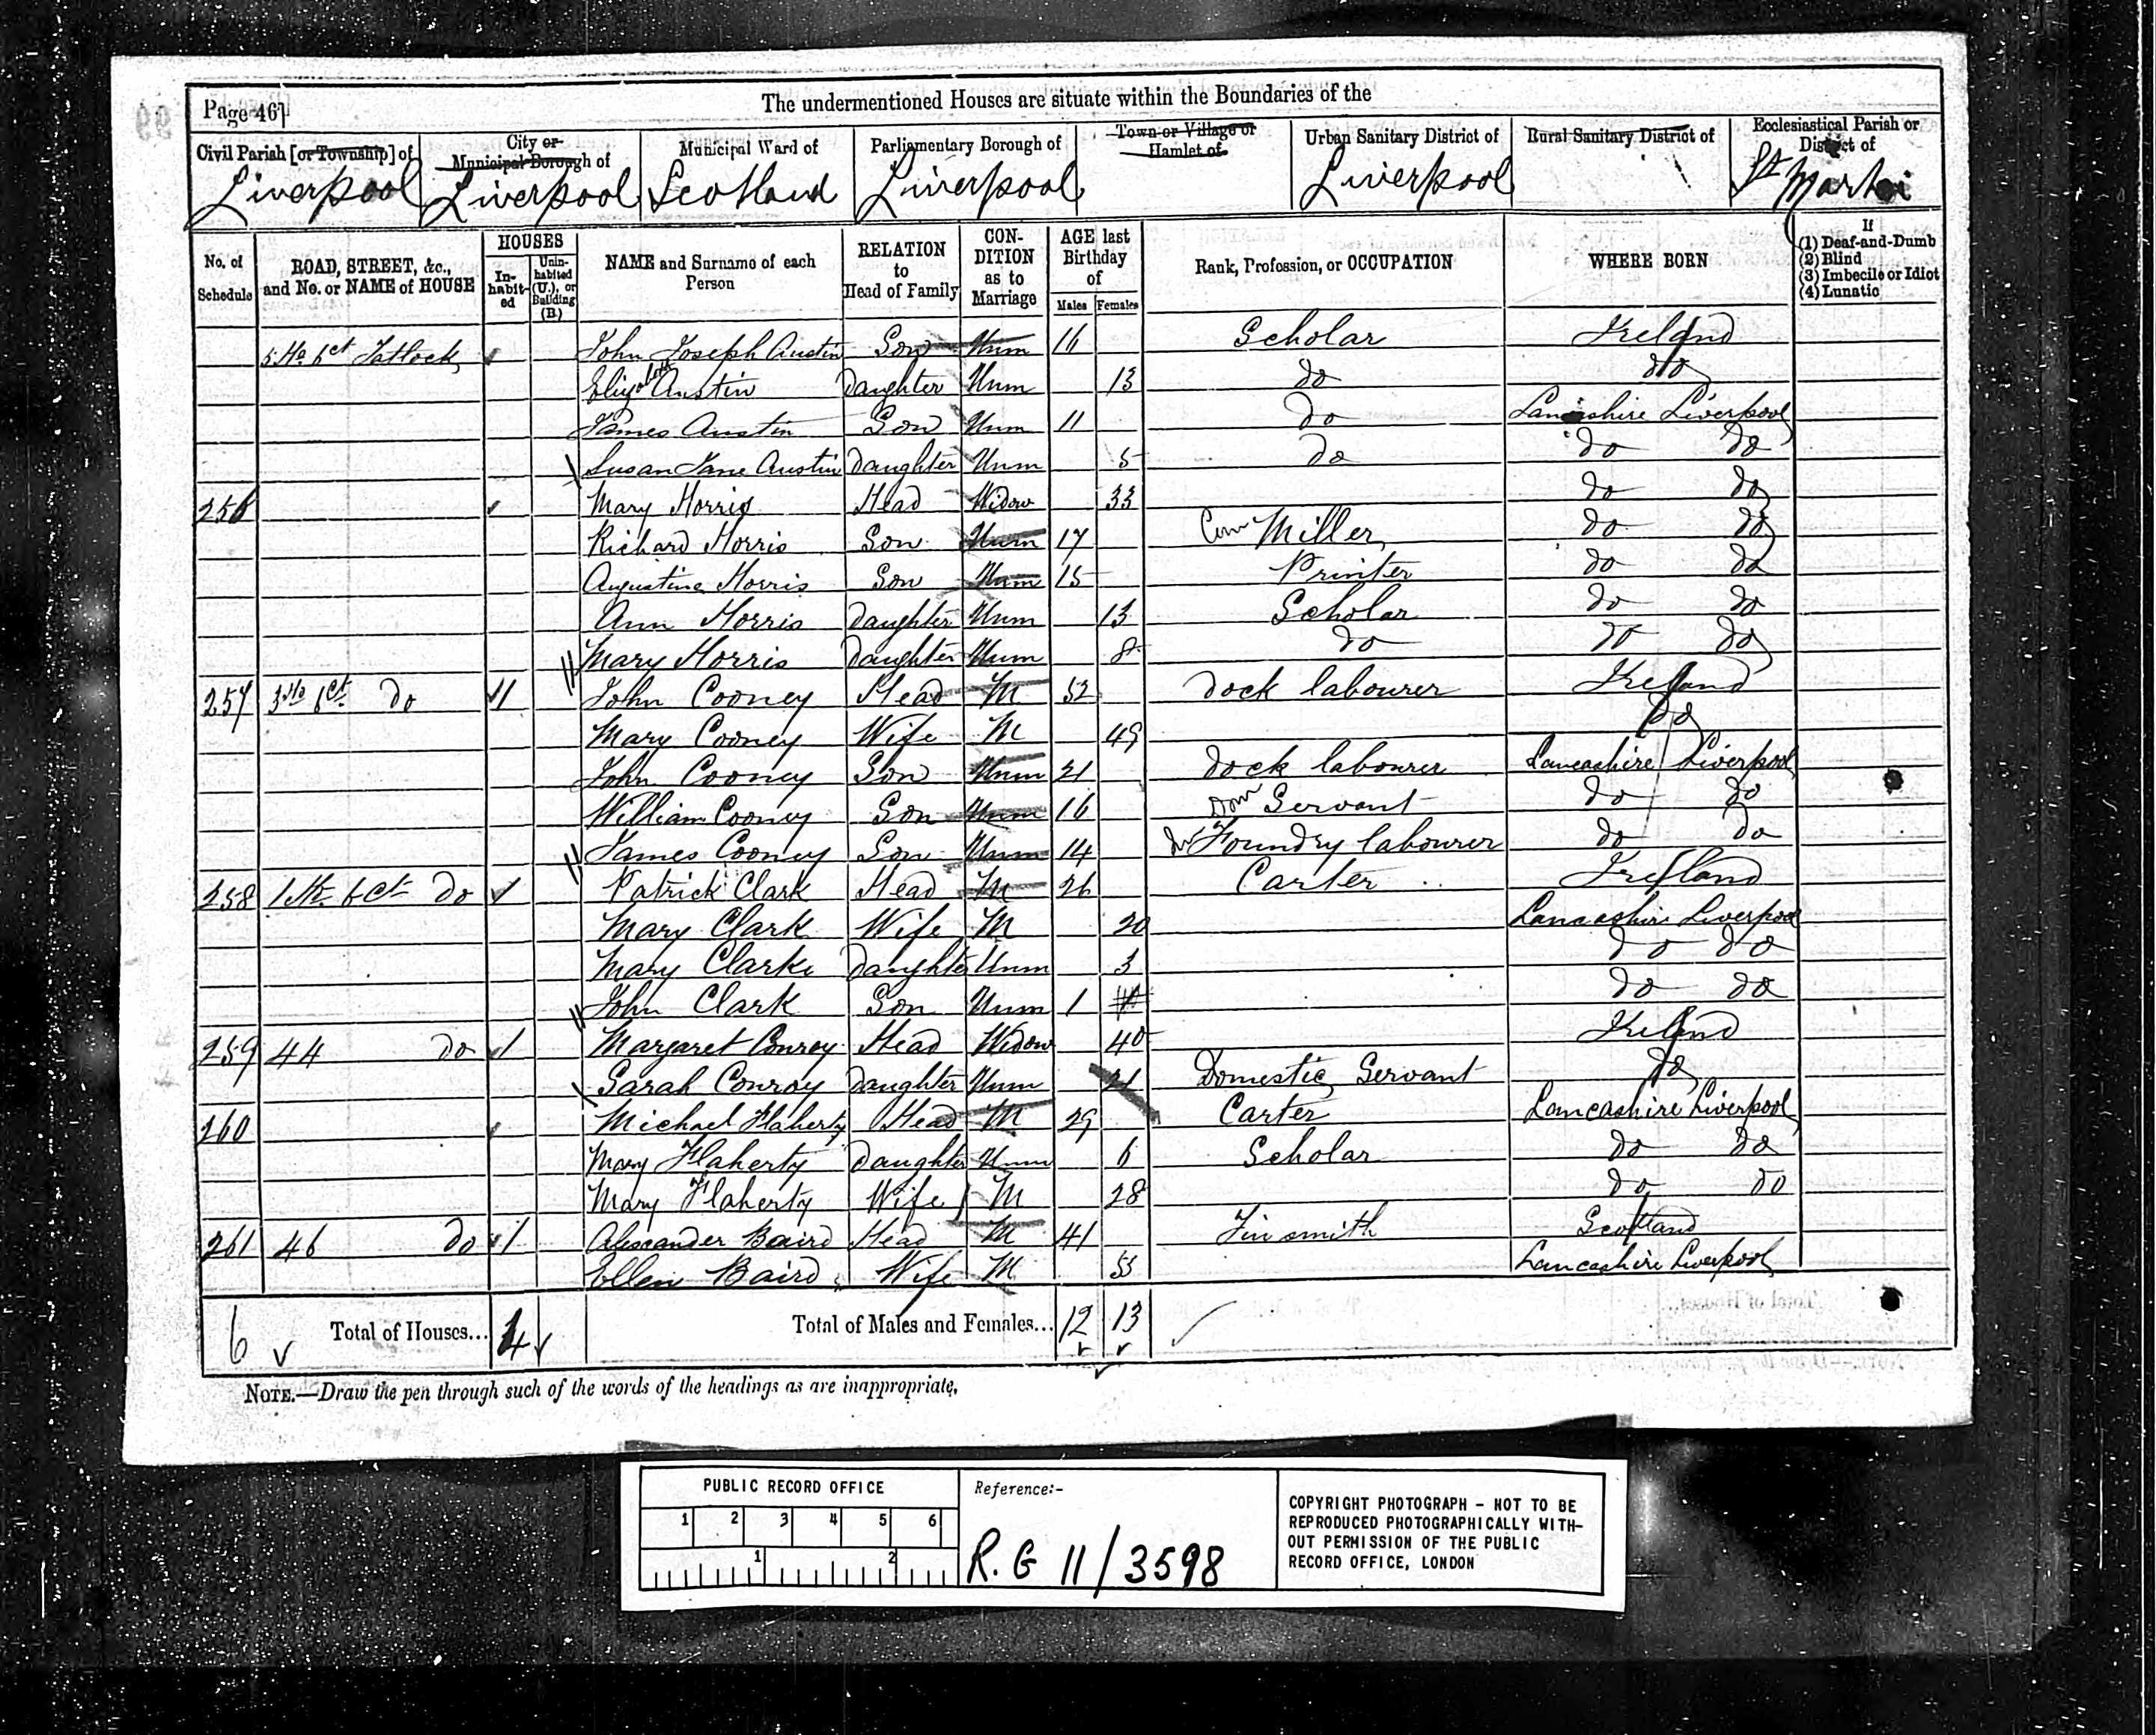 Page 46]
The undermentioned Houses are situate within the Boundaries of the
Civil Parish [or Township] of
City or Municipal Borough of
Municipal Ward of
Parliamentary Borough of
Town or Village or Hamlet of
Urban Sanitary District of
Rural Sanitary District of
Ecclesiastical Parish or District of
Liverpool Liverpool Scotland Liverpool Liverpool St Martin
No. of Schedule
ROAD, STREET, &c., and No. or NAME of HOUSE
HOUSES
In-habit-ed
Unin-habited (U.), or Building (B.)
NAME and Surname of each Person
RELATION to Head of Family
CON-DITION as to Marriage
AGE last Birthday of
Males Females
Rank, Profession, or OCCUPATION
WHERE BORN
If
(1) Deaf-and-Dumb
(2) Blind
(3) Imbecile or Idiot
(4) Lunatic
5 Ho 6 ct Tatlock John Joseph Austin Son Unm 16 Scholar Ireland
Elizabeth Austin Daughter Unm 13 do do
James Austin Son Unm 11 do Lancashire Liverpool
Susan Jane Austin Daughter Unm 5 do do do
256 Mary Morris Head Widow 33 do do
Richard Morris Son Unm 17 Miller do do
Augustine Morris Son Unm 15 Printer do do
Ann Morris Daughter Unm 13 Scholar do do
Mary Morris Daughter Unm 8 do do do
257 3 Ho 6 Ct do 1 John Cooney Head M 52 Dock labourer Ireland
Mary Cooney Wife M 49 do
John Cooney Son Unm 21 Dock labourer Lancashire Liverpool
William Cooney Son Unm 16 Dom Servant do do
James Cooney Son Unm 14 Foundry labourer do do
258 1 Ho 6 Ct do Patrick Clark Head M 26 Carter Ireland
Mary Clark Wife M 20 Lancashire Liverpool
Mary Clarke Daughter Unm 3 do do
John Clark Son Unm 1 do do
259 44 do 1 Margaret Conroy Head Widow 40 Ireland
Sarah Conroy Daughter Unm 21 Domestic Servant do
260 Michael Flaherty Head M 29 Carter Lancashire Liverpool
Mary Flaherty Daughter Unm 6 Scholar do do
Mary Flaherty Wife M 28 do do
261 46 do 1 Alexander Baird Head M 41 Tinsmith Scotland
Ellen Baird Wife M Lancashire Liverpool
6 Total of Houses... 4 Total of Males and Females... 12 13
NOTE.—Draw the pen through such of the words of the headings as are inappropriate.
PUBLIC RECORD OFFICE
1 2 3 4 5 6
1 2
Reference:-
R.G 11/3598
COPYRIGHT PHOTOGRAPH - NOT TO BE
REPRODUCED PHOTOGRAPHICALLY WITH-
OUT PERMISSION OF THE PUBLIC
RECORD OFFICE, LONDON